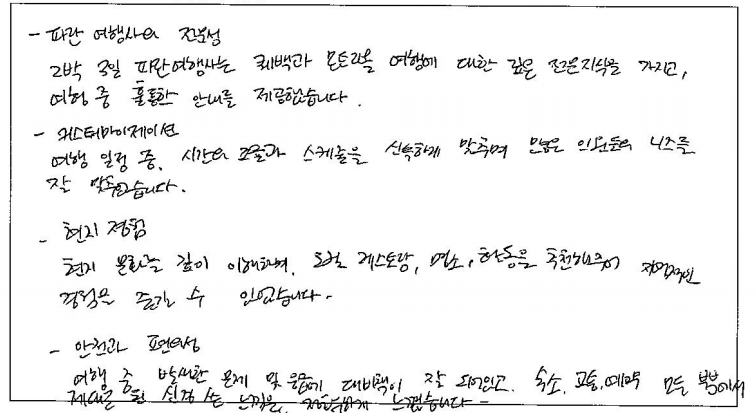 - 파란 여행사의 전문성
2박 3일 파란여행사는 퀘백과 몬트리올 여행에 대한 깊은 전문지식을 가지고,
여행 중 훌륭한 안내를 제공했습니다.
- 커스터마이제이션
여행 일정 중, 시간의 조율과 스케줄을 신속하게 맞추며 많은 의원들의 니즈를
잘 맞추었습니다.
- 현지 경험
현지 문화를 깊이 이해하며, 로컬 레스토랑, 명소, 활동을 추천해주어
경험을 즐길 수 있었습니다.
- 안전과 편의성
여행 중 발생한 문제 및 응급에 대비책이 잘 되어있고, 숙소, 교통, 예약 모든 부분에서
느꼈습니다 -